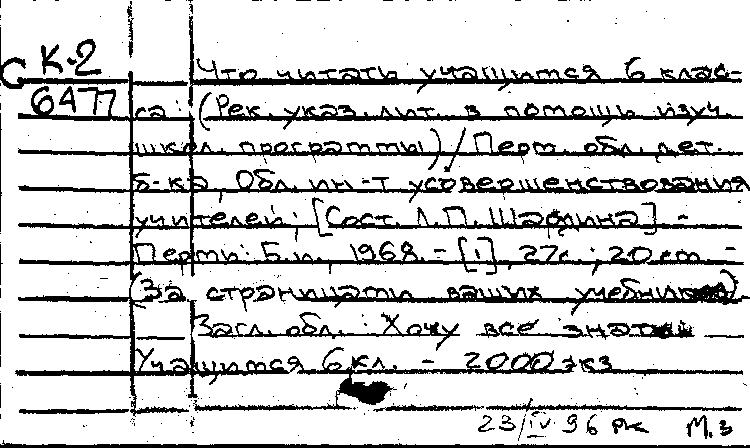 С К-2
6477
Что читать учащимся 6 клас-
са: (Рек. указ. лит. в помощь изуч.
школ. программы) / Перм. обл. дет.
б-ка, Обл. ин-т усовершенствования
учителей; [Сост. Л.П. Шардина] -
Пермь: Б.и., 1968. - [1], 27с.; 20 см. -
(За страницами ваших учебников)
Загл. обл.: Хочу все знать
Учащимся 6 кл. - 2000 экз
23/IV 96 М.З